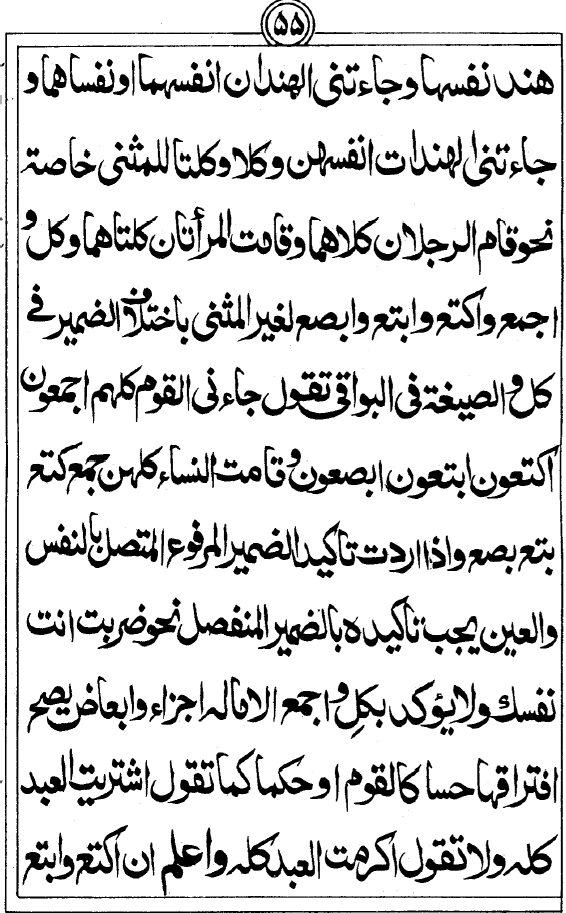 ۵۵
هند نفسها وجاءتنی الهندان انفسهما او نفساهما و
جاءتنی الهندات انفسهن وکلا وکلتا للمثنی خاصة
نحو قام الرجلان کلاهما وقامت المرأتان کلتاهما وکل و
اجمع واکتع وابتع وابصع لغیر المثنی باختلاف الضمیر فی
کل والصیغة فی البواقی تقول جاءنی القوم کلهم اجمعون
اکتعون ابتعون ابصعون وقامت النساء کلهن جمع کتع
بتع بصع واذا اردت تاکید الضمیر المرفوع المتصل بالنفس
والعین یجب تاکیده بالضمیر المنفصل نحو ضربت انت
نفسك ولا یؤکد بکلِ واجمع الا ماله اجزاء وابعاض یصح
افتراقها حسا کالقوم او حکما کما تقول اشتریت العبد
کله ولا تقول اکرمت العبد کله واعلم ان اکتع وابتع